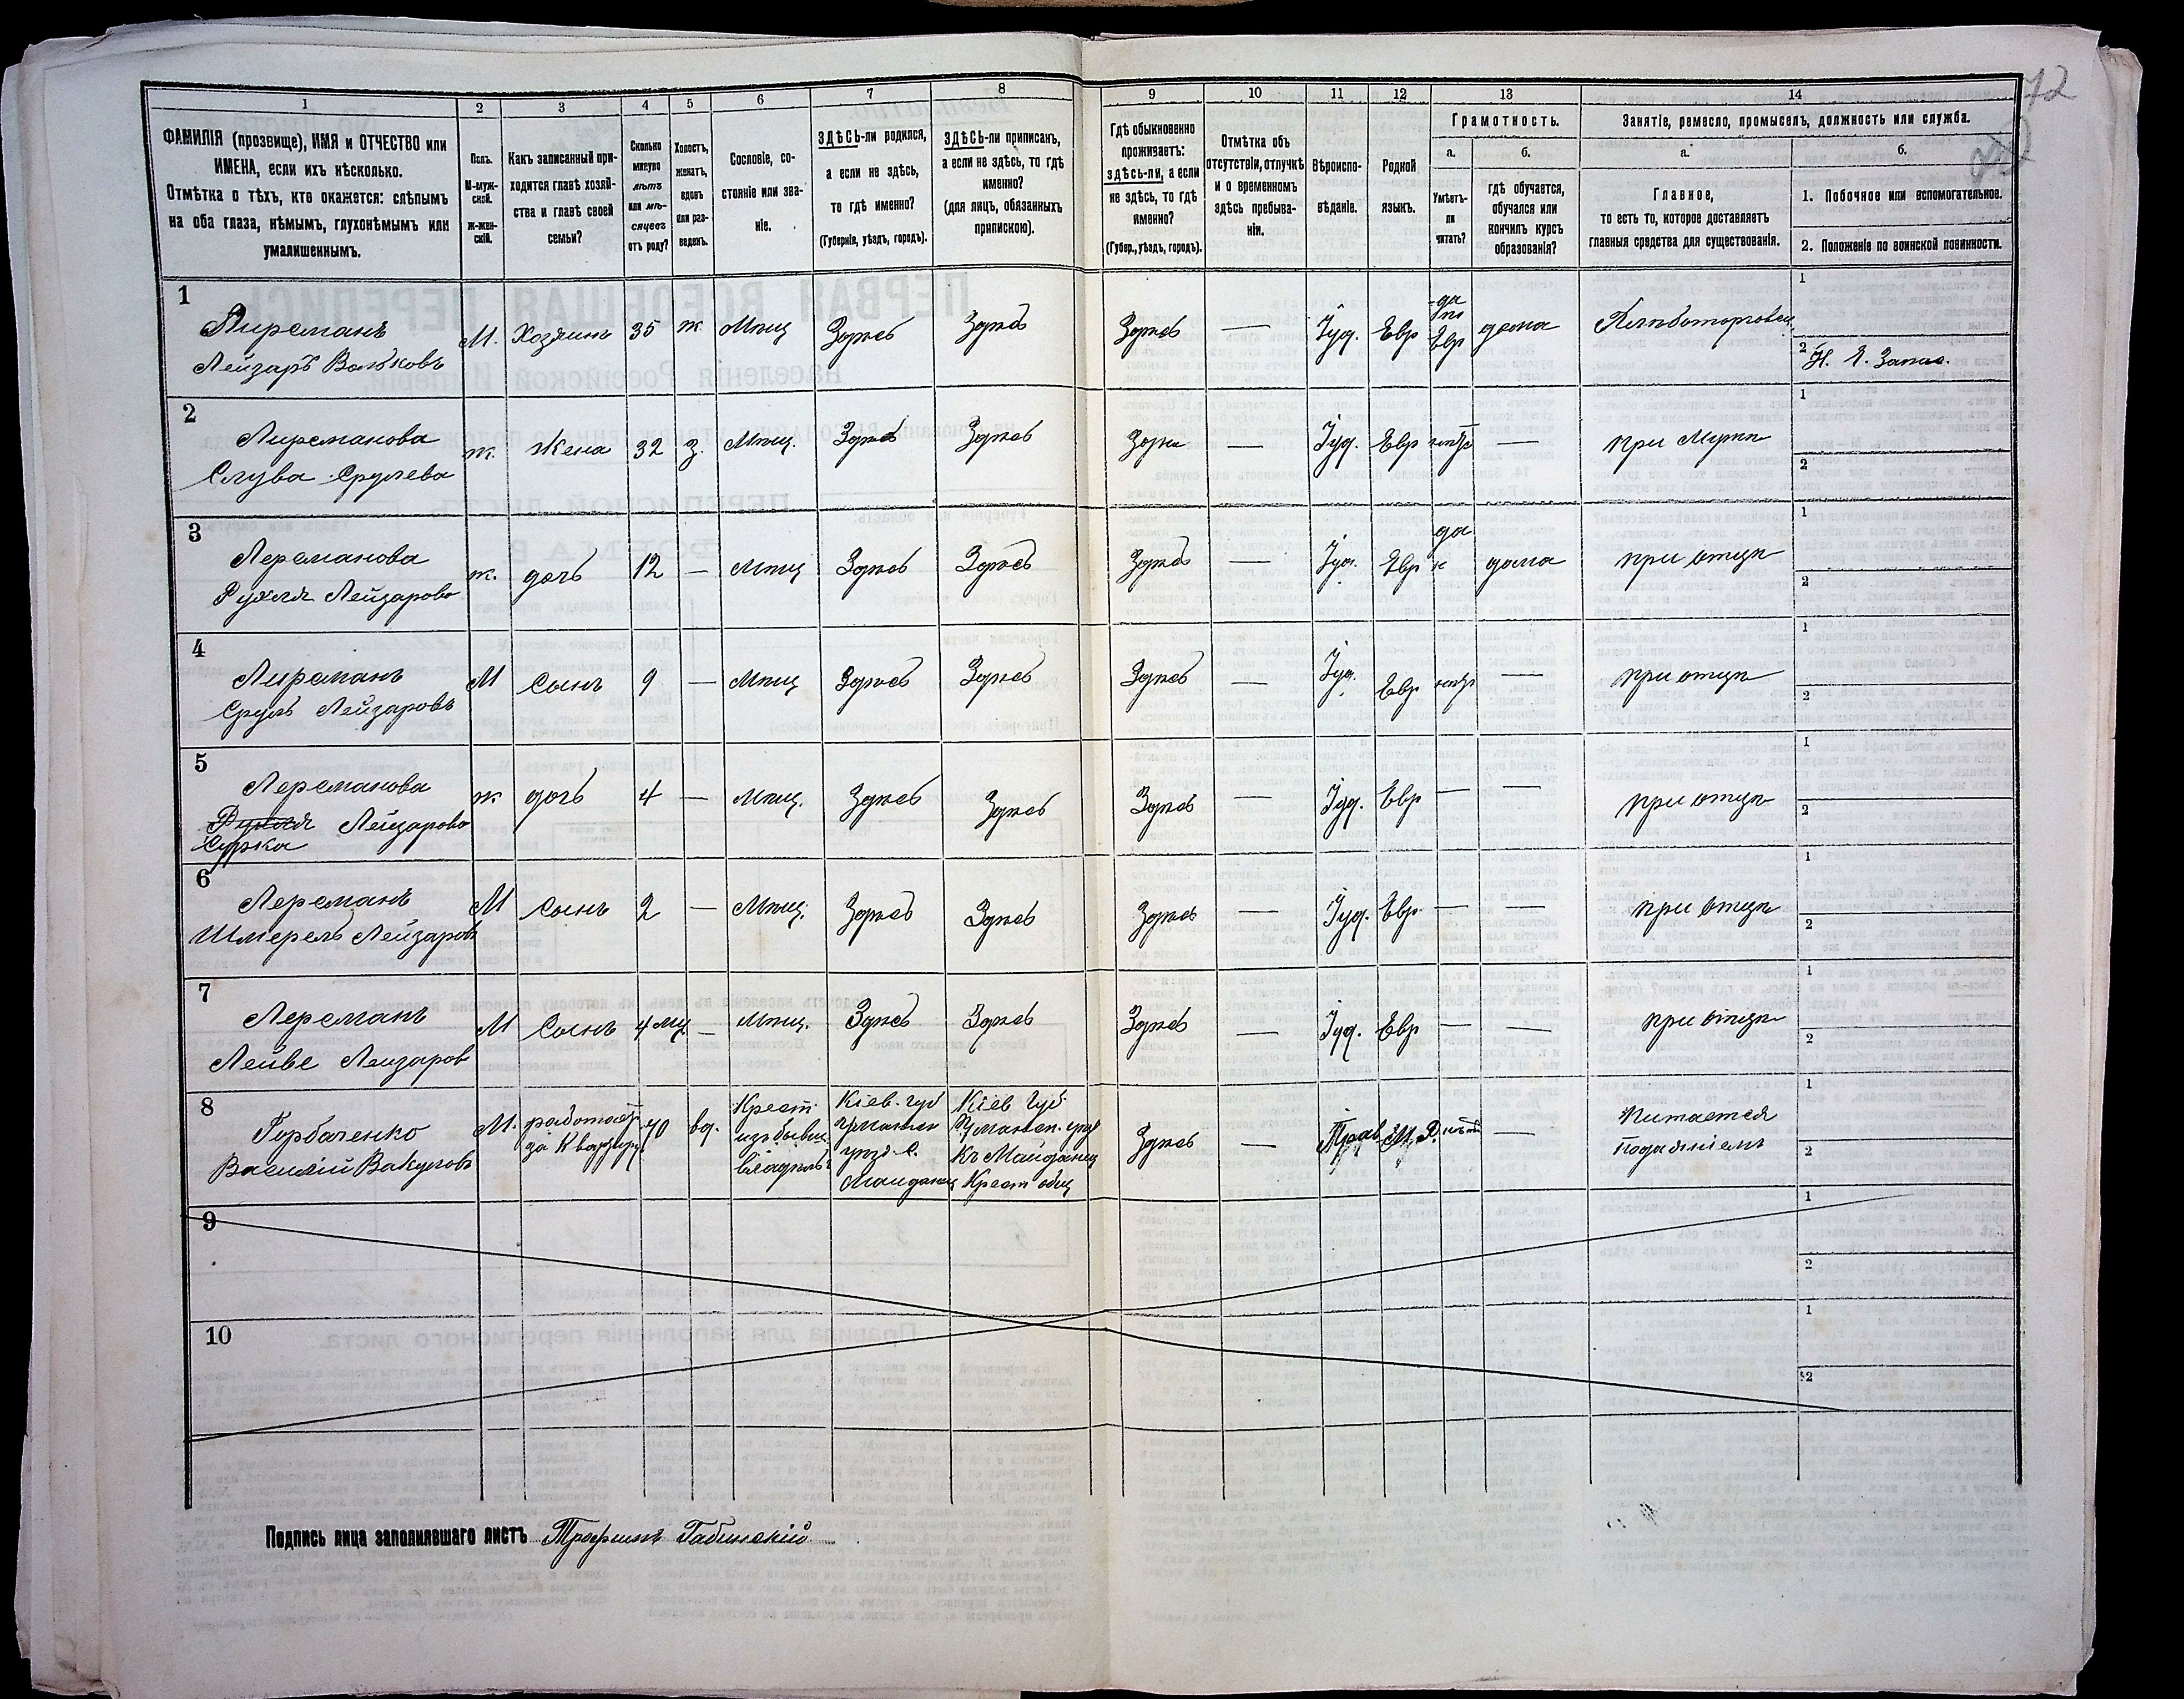 72
1 2 3 4 5 6 7 8 9 10 11 12 13 14
ФАМИЛІЯ (прозвище), ИМЯ и ОТЧЕСТВО или
ИМЕНА, если ихъ нѣсколько.
Отмѣтка о тѣхъ, кто окажется: слѣпымъ
на оба глаза, нѣмымъ, глухонѣмымъ или
умалишеннымъ.
Полъ.
М-муж-
ской.
Ж-жен-
скій.
Какъ записанный при-
ходится главѣ хозяй-
ства и главѣ своей
семьи?
Сколько
минуло
лѣтъ
или мѣ-
сяцевъ
отъ роду?
Холостъ,
женатъ,
вдовъ
или раз-
веденъ.
Сословіе, со-
стояніе или зва-
ніе.
ЗДѢСЬ-ли родился,
а если не здѣсь,
то гдѣ именно?
(Губернія, уѣздъ, городъ).
ЗДѢСЬ-ли приписанъ,
а если не здѣсь, то гдѣ
именно?
(для лицъ, обязанныхъ
припискою).
Гдѣ обыкновенно
проживаетъ:
здѣсь-ли, а если
не здѣсь, то гдѣ
именно?
(Губер., уѣздъ, городъ).
Отмѣтка объ
отсутствіи, отлучкѣ
и о временномъ
здѣсь пребыва-
ніи.
Вѣроиспо-
вѣданіе.
Родной
языкъ.
Грамотность.
а.
Умѣетъ-
ли
читать?
б.
гдѣ обучается,
обучался или
кончилъ курсъ
образованія?
Занятіе, ремесло, промыселъ, должность или служба.
а.
Главное,
то есть то, которое доставляетъ
главныя средства для существованія.
б.
1. Побочное или вспомогательное.
2. Положеніе по воинской повинности.
1
Лирсманъ
Лейзаръ Вольковъ
М. Хозяинъ 35 ж Мѣщ Здѣсь Здѣсь Здѣсь — Іуд. Евр да
Евр дома Хлѣботорговец.
1
2 Н. I. Запас.
2
Лирсманова
Слува Срулева
ж. Жена 32 З. Мѣщ. Здѣсь Здѣсь Здѣсь — Іуд. Евр нѣтъ — при Мужѣ
1
2
3
Лерсманова
Рухля Лейзарова
ж. дочь 12 — Мѣщ Здѣсь Здѣсь Здѣсь — Іуд. Евр да дома при отцѣ
1
2
4
Лирсманъ
Сруль Лейзаровъ
М Сынъ 9 — Мѣщ Здѣсь Здѣсь Здѣсь — Іуд. Евр нѣтъ — при отцѣ
1
2
5
Лерсманова
Рухля Лейзарова
Сурка
ж дочь 4 — Мѣщ. Здѣсь Здѣсь Здѣсь — Іуд. Евр — — при отцѣ
1
2
6
Лерсманъ
Шмерель Лейзаровъ
М Сынъ 2 — Мѣщ. Здѣсь Здѣсь Здѣсь — Іуд. Евр — — при отцѣ
1
2
7
Лерсманъ
Лейве Лейзаров
М Сынъ 4 мц. — Мѣщ. Здѣсь Здѣсь Здѣсь — Іуд. Евр — — при отцѣ
1
2
8
Горбаченко
Василій Вакуловъ
М. работаетъ
за Квартиру
70 вд.
Крест.
изъ бывш.
владѣль
Кіев. губ
Уманск
уѣзд. с.
Майданец
Кіев Губ.
Уманск. уѣзд
Къ Майданец
Крест общ
Здѣсь — Прав. М. Р. нѣтъ —
Питается
Подаяніемъ
1
2
9
1
2
10
1
2
Подпись лица заполнявшаго листъ Трофимъ Габинскій